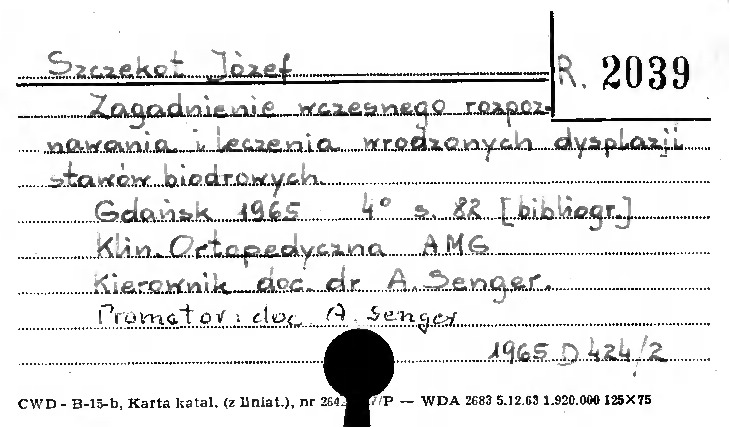 Szczekot Józef
R. 2039
Zagadnienie wczesnego rozpoz-
nawania i leczenia wrodzonych dysplazji
stawów biodrowych.
Gdańsk 1965 4° s. 82 [bibliogr.]
Klin. Ortopedyczna AMG
Kierownik doc. dr A. Senger.
Promotor: doc. A. Senger
1965 D 424/2
CWD - B-15-b, Karta katal. (z liniat.), nr /P — WDA 2683 5.12.63 1.920.000 125×75